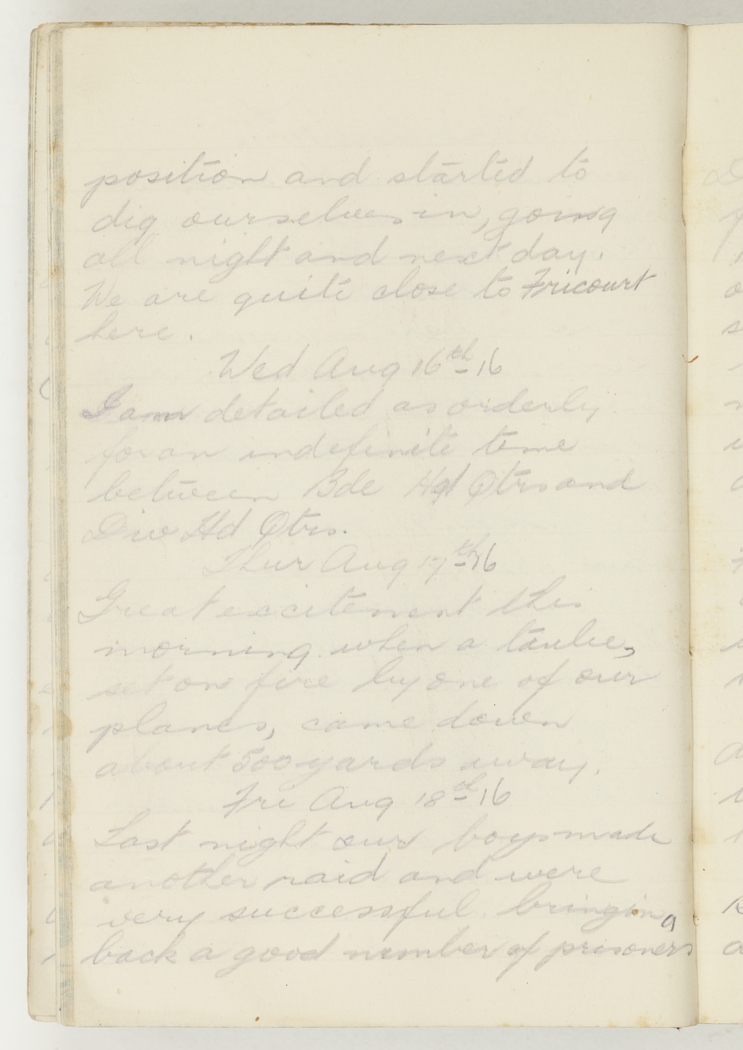 position and started to
dig ourselves in, going
all night and next day.
We are quite close to Fricourt
here.
Wed Aug 16th 16
I am detailed as orderly
for an indefinite time
between Bde Hd Qtrs and
Div Hd Qtrs.
Thur Aug 17th 16
Great excitement this
morning when a taube,
set on fire by one of our
planes, came down
about 500 yards away.
Fri Aug 18th 16
Last night our boys made
another raid and were
very successful bringing
back a good number of prisoners